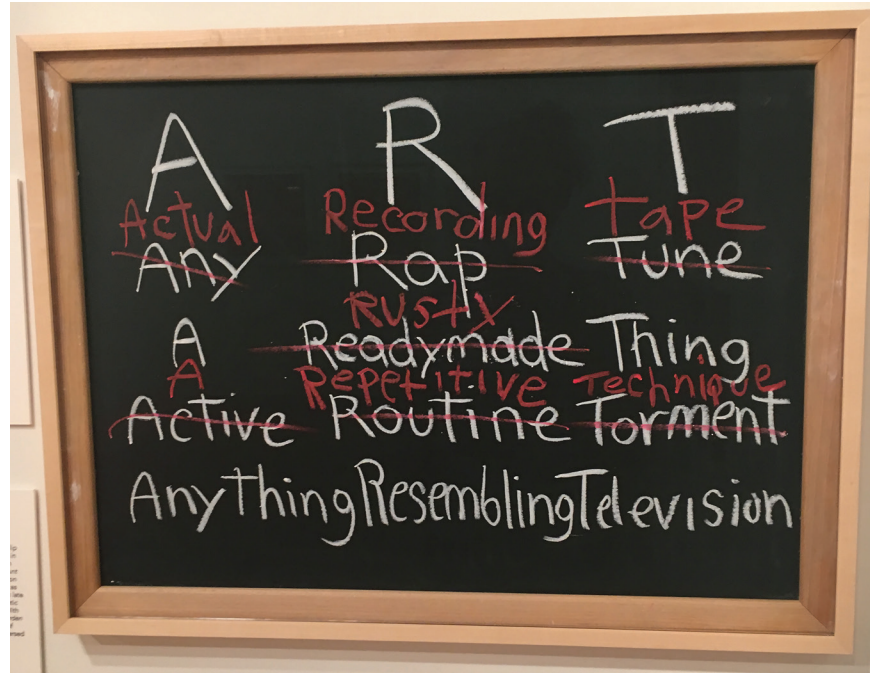 A R T
Actual Recording tape
Any Rap Tune
Rusty
A Readymade Thing
A Repetitive Technique
Active Routine Torment
AnyThingResemblingTelevision